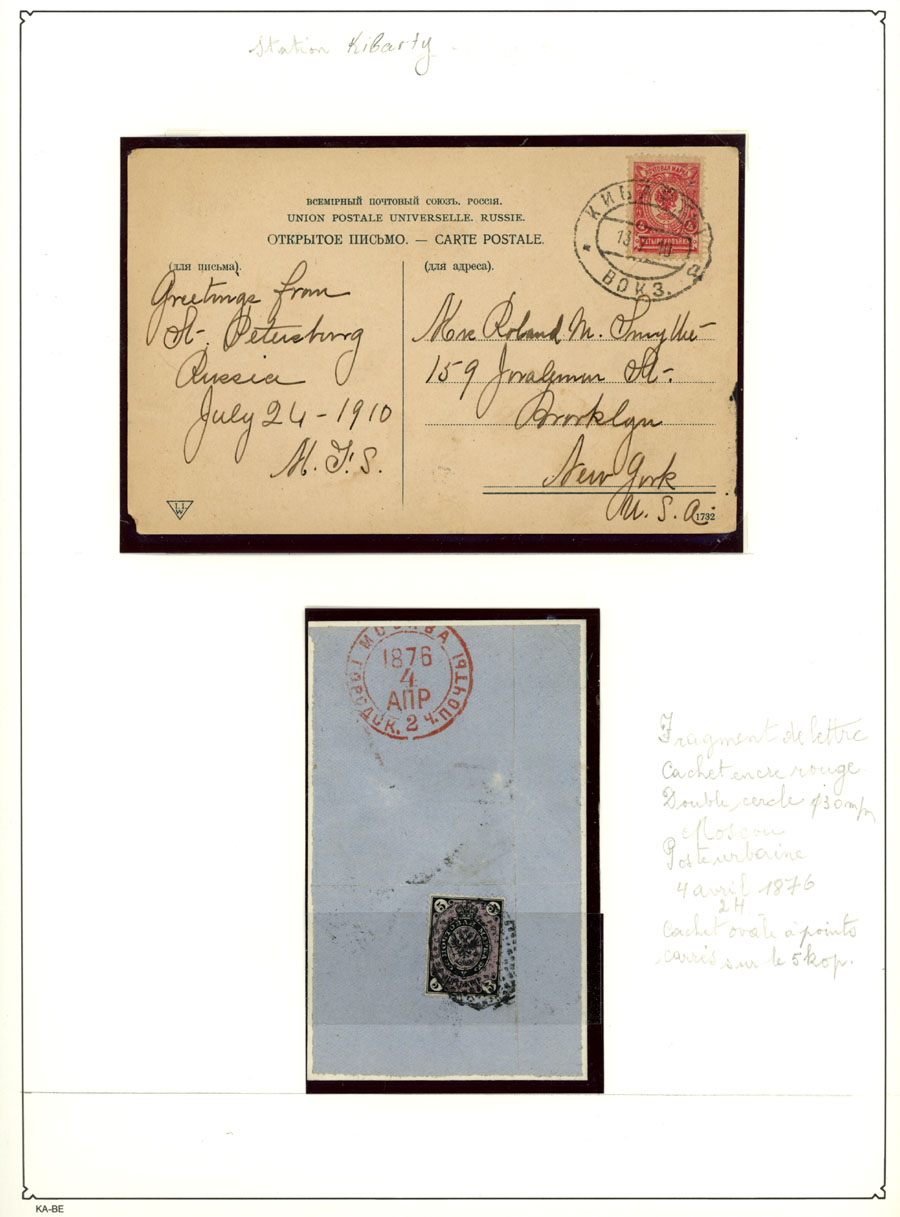 Station Kibarty
ВСЕМІРНЫЙ ПОЧТОВЫЙ СОЮЗЪ. РОССІЯ.
UNION POSTALE UNIVERSELLE. RUSSIE.
ОТКРЫТОЕ ПИСЬМО. — CARTE POSTALE.
(для письма).
(для адреса).
ВОКЗ.
Greetings from
St. Petersburg
Russia
July 24 - 1910
M. F. S.
Mrs Roland M. Smythe
159 Joralemon St.
Brooklyn
New York
U. S. A.
1732
МОСКВА
1876
4
АПР
ГОРОДСК. 2 Ч. ПОЧТЫ
5
5
5
5
Fragment de lettre
Cachet encre rouge
Double cercle ø 30 mm
Moscou
Poste urbaine
4 avril 1876
2H
Cachet ovale à points
carrés sur le 5 kop.
KA-BE